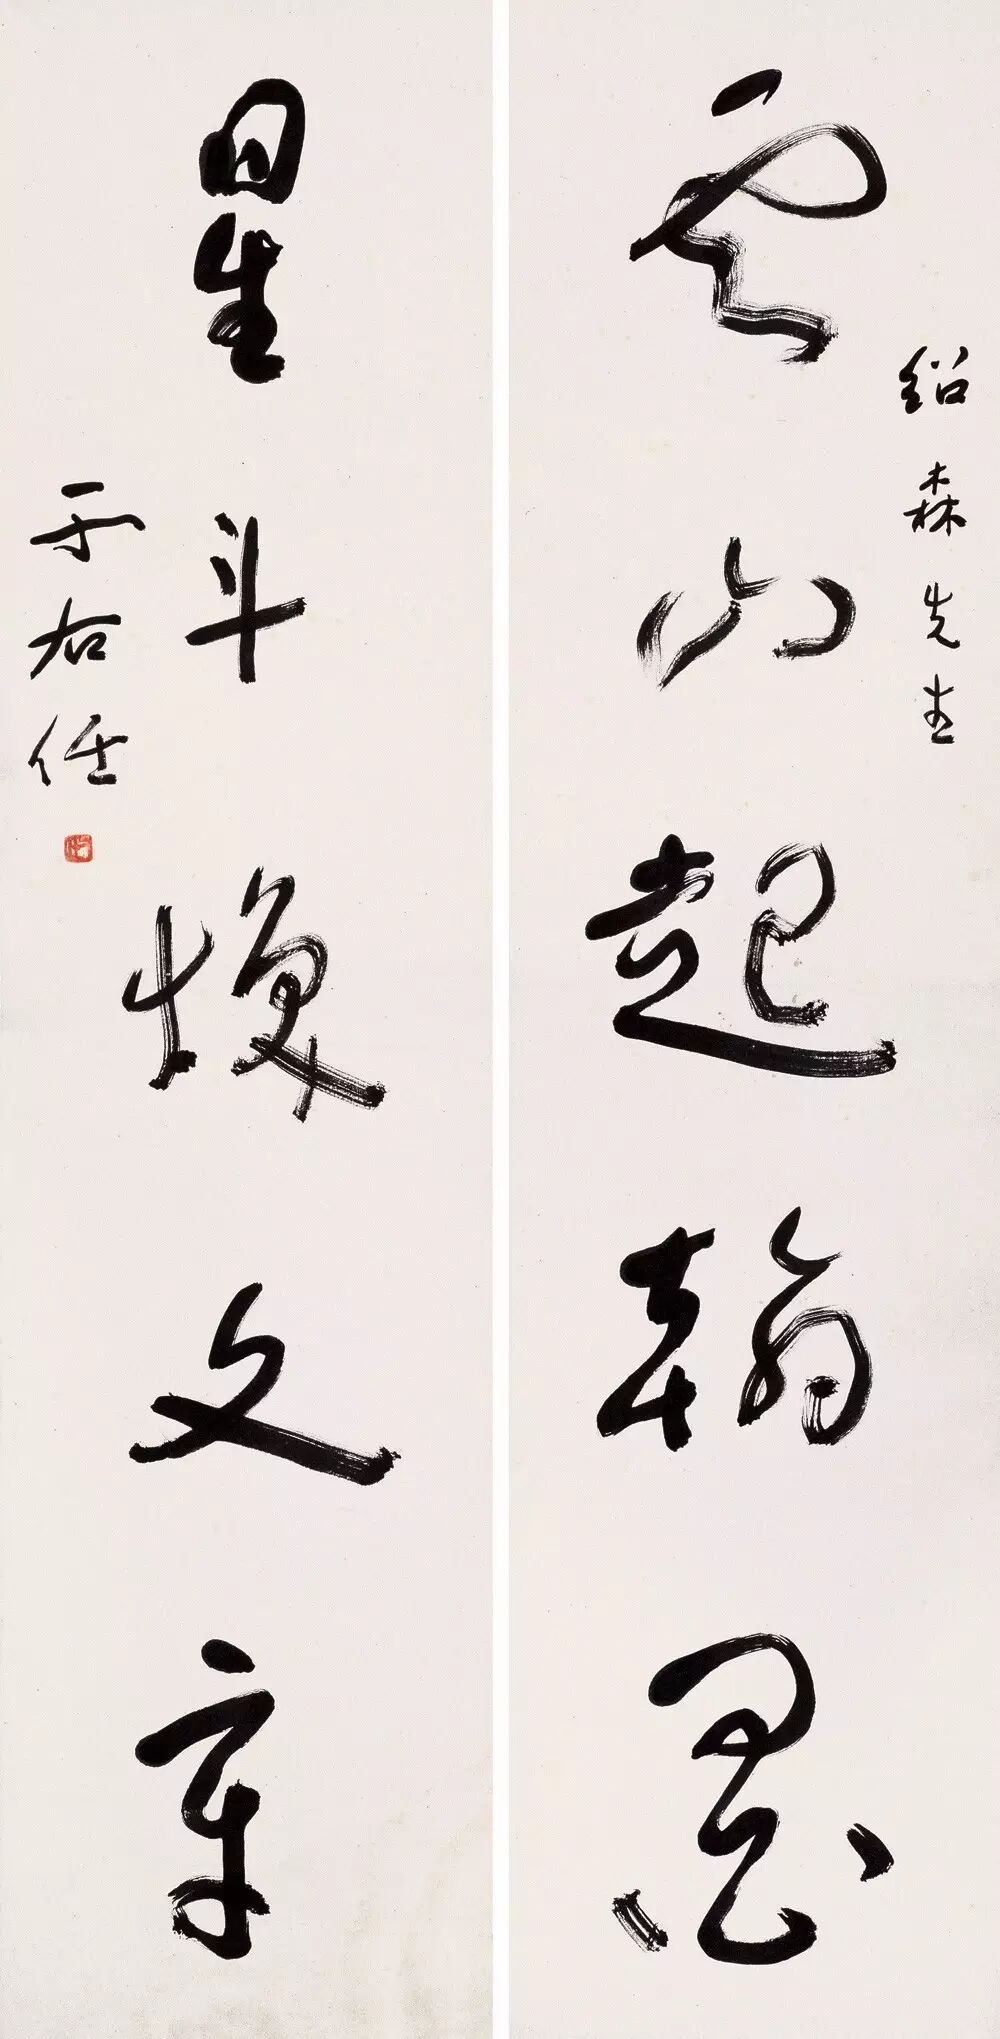 云山起翰墨
绍森先生
星斗焕文章
于右任